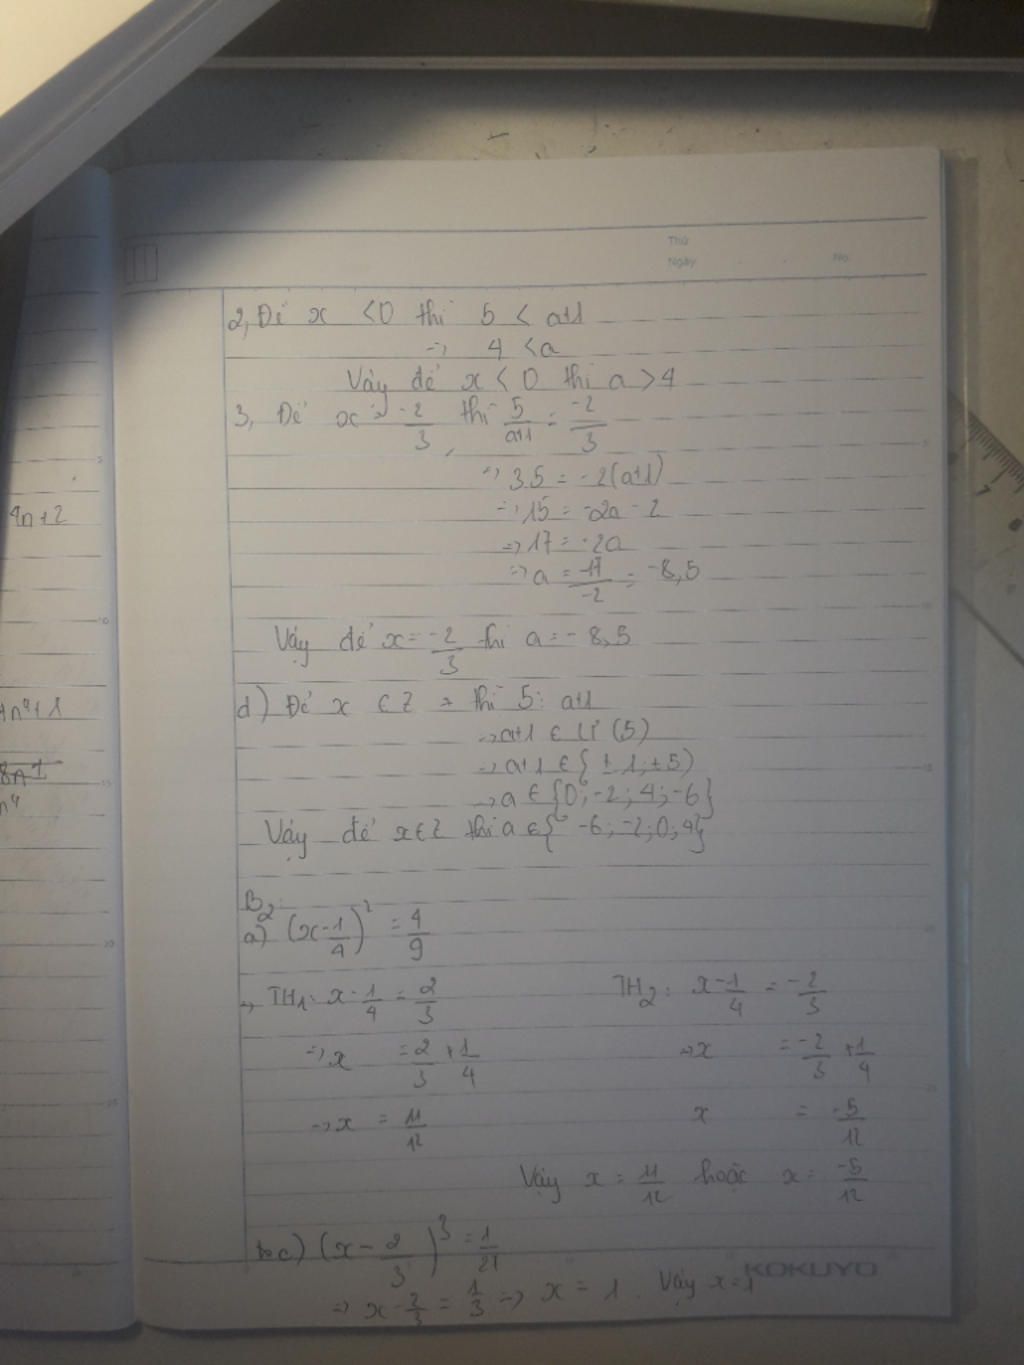 4n+2
+n⁴+1
8n¹
n⁴
Thứ
Ngày
No.
2, Để x < 0 thì 5 < a+1
=> 4 < a
Vậy để x < 0 thì a > 4
3, Để x = -2/3 thì 5/a+1 = -2/3
=> 3.5 = -2(a+1)
=> 15 = -2a - 2
=> 17 = -2a
=> a = -17/-2 = -8,5
Vậy để x = -2/3 thì a = -8,5
d) Để x ∈ Z => thì 5 ⋮ a+1
=> a+1 ∈ Ư(5)
=> a+1 ∈ {±1; ±5}
=> a ∈ {0; -2; 4; -6}
Vậy để x ∈ Z thì a ∈ { -6; -2; 0; 4}
B2:
a) (x - 1/4)² = 4/9
=> TH1: x - 1/4 = 2/3 TH2: x - 1/4 = -2/3
=> x = 2/3 + 1/4 => x = -2/3 + 1/4
=> x = 11/12 x = -5/12
Vậy x = 11/12 hoặc x = -5/12
c) (x - 2/3)³ = 1/27
=> x - 2/3 = 1/3 => x = 1. Vậy x = 1
KOKUYO